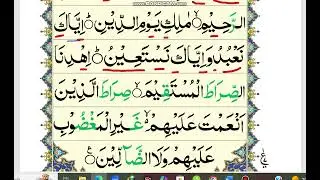 الرَّحِيْمِ ۙ مٰلِكِ يَوْمِ الدِّيْنِ ؕ اِيَّاكَ
نَعْبُدُ وَ اِيَّاكَ نَسْتَعِيْنُ ؕ اِهْدِنَا
الصِّرَاطَ الْمُسْتَقِيْمَ ۙ صِرَاطَ الَّذِيْنَ
اَنْعَمْتَ عَلَيْهِمْ ۙ غَيْرِ الْمَغْضُوْبِ
عَلَيْهِمْ وَلَا الضَّآلِّيْنَ